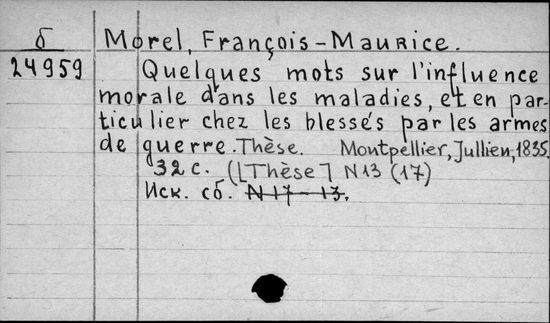 б Morel, François-Maurice.
24959 Quelques mots sur l'influence
morale dans les maladies, et en par-
ticulier chez les blessés par les armes
de guerre. Thèse. Montpellier, Jullien, 1835.
32 с. ([Thèse] N 13 (17)
Иск. сб. N 17-13.